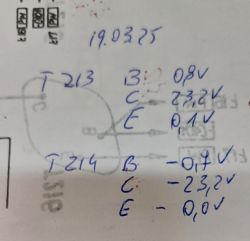 19.03.25
T 213 B 0,8V
C 23,2V
E 0,1V
T 214 B -0,7V
C -23,2V
E - 0,0V